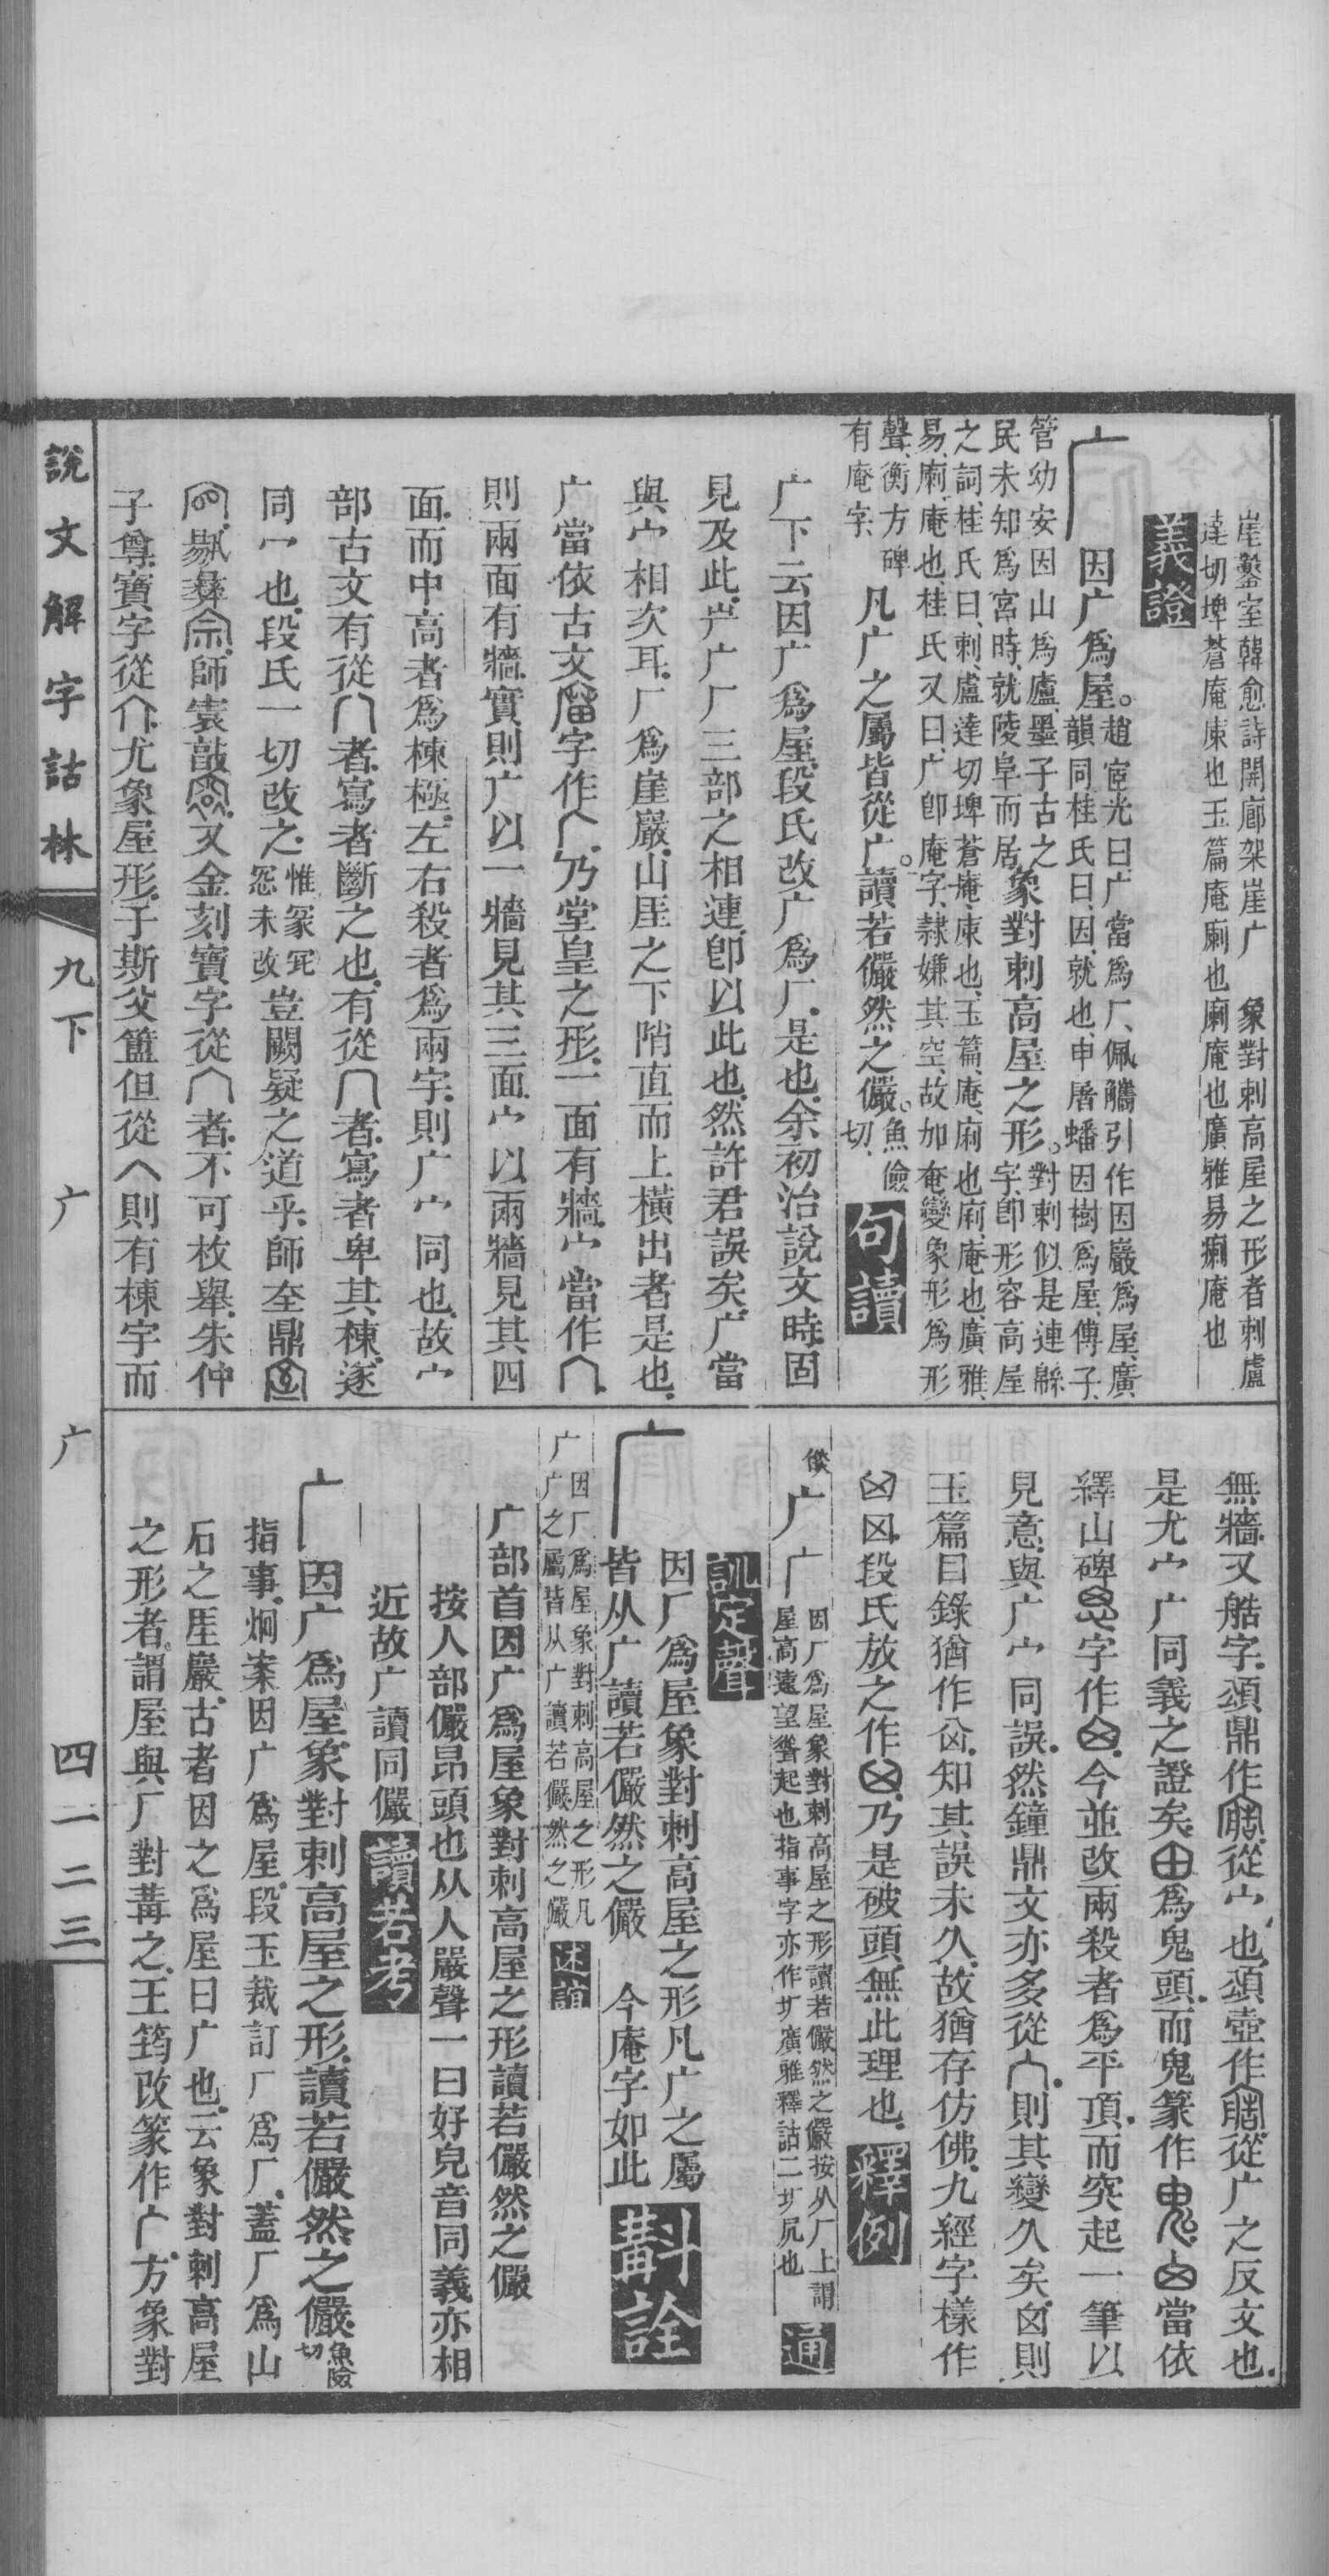 崖鑿室韓愈詩開廊架崖广　象對刺高屋之形者刺盧
達切埤蒼庵庲也玉篇庵廟也廟庵也廣雅易廟庵也
義證
因广爲屋。
趙宧光曰、广當爲厂、佩觿引作因巖爲屋、廣
韻同、桂氏曰、因、就也、申屠蟠因樹爲屋、傅子、
管幼安因山爲廬、墨子古之
民未知爲宮時、就陵阜而居、
象對刺高屋之形。
對剌似是連緜
字、卽形容高屋
之詞、桂氏曰、刺、盧達切、埤蒼、庵、庲也、玉篇、庵、廟也、廟、庵也、廣雅、
易、廟、庵也、桂氏又曰、广、卽庵字、隸嫌其空、故加奄、變象形爲形
聲、衡方碑
有庵字、
凡广之屬皆從广。讀若儼然之儼。
魚儉
切、
句讀
广下云因广爲屋、段氏改广爲厂、是也、余初治說文時、固
見及此、屵广厂三部之相連、卽以此也、然許君誤矣、广當
與宀相次耳、厂爲崖巖、山厓之下陗直而上橫出者是也、
广當依古文字作、乃堂皇之形、一面有牆、宀當作、
則兩面有牆、實則广以一牆見其三面、宀以兩牆見其四
面、而中高者爲棟極、左右殺者爲兩宇、則广宀同也、故宀
部古文有從者、寫者斷之也、有從者、寫者卑其棟、遂
同冖也、段氏一切改之、
惟冢冘
怨未改
豈闕疑之道乎、師𡊮鼎、
彝、師袁敲、又金刻寶字從者、不可枚舉、朱仲
子尊寶字從、尤象屋形、于斯父簠但從則有棟宇而
無牆、又䑽字、頌鼎作、從宀也、頌壺作、從广之反文也、
是尤宀广同義之證矣、爲鬼頭、而鬼篆作、當依
繹山碑字作、今並改兩殺者爲平頂、而突起一筆以
見意、與广宀同誤、然鐘鼎文亦多從、則其變久矣、囟則
玉篇目錄猶作、知其誤未久、故猶存仿佛、九經字樣作
囟、段氏放之作、乃是破頭、無此理也、
釋例
广
因厂爲屋象對刺高屋之形讀若儼然之儼按从厂上謂
屋高遠望聳起也指事字亦作广廣雅釋詁二广凥也
通
訓定聲
因厂爲屋象對刺高屋之形凡广之屬
皆从广讀若儼然之儼　今庵字如此
斠詮
广
因厂爲屋象對刺高屋之形凡
广之屬皆从广讀若儼然之儼
述誼
广部首因广爲屋象對刺高屋之形讀若儼然之儼
按人部儼昂頭也从人嚴聲一曰好皃音同義亦相
近故广讀同儼
讀若考
因广爲屋、象對刺高屋之形、讀若儼然之儼、
魚險
切
指事、炯案因广爲屋、段玉裁訂厂爲厂、蓋厂爲山
石之厓巖、古者因之爲屋曰广也、云象對刺高屋
之形者、謂屋與厂對冓之、王筠改篆作、方象對
說文解字詁林
九下
广
广
四一二三